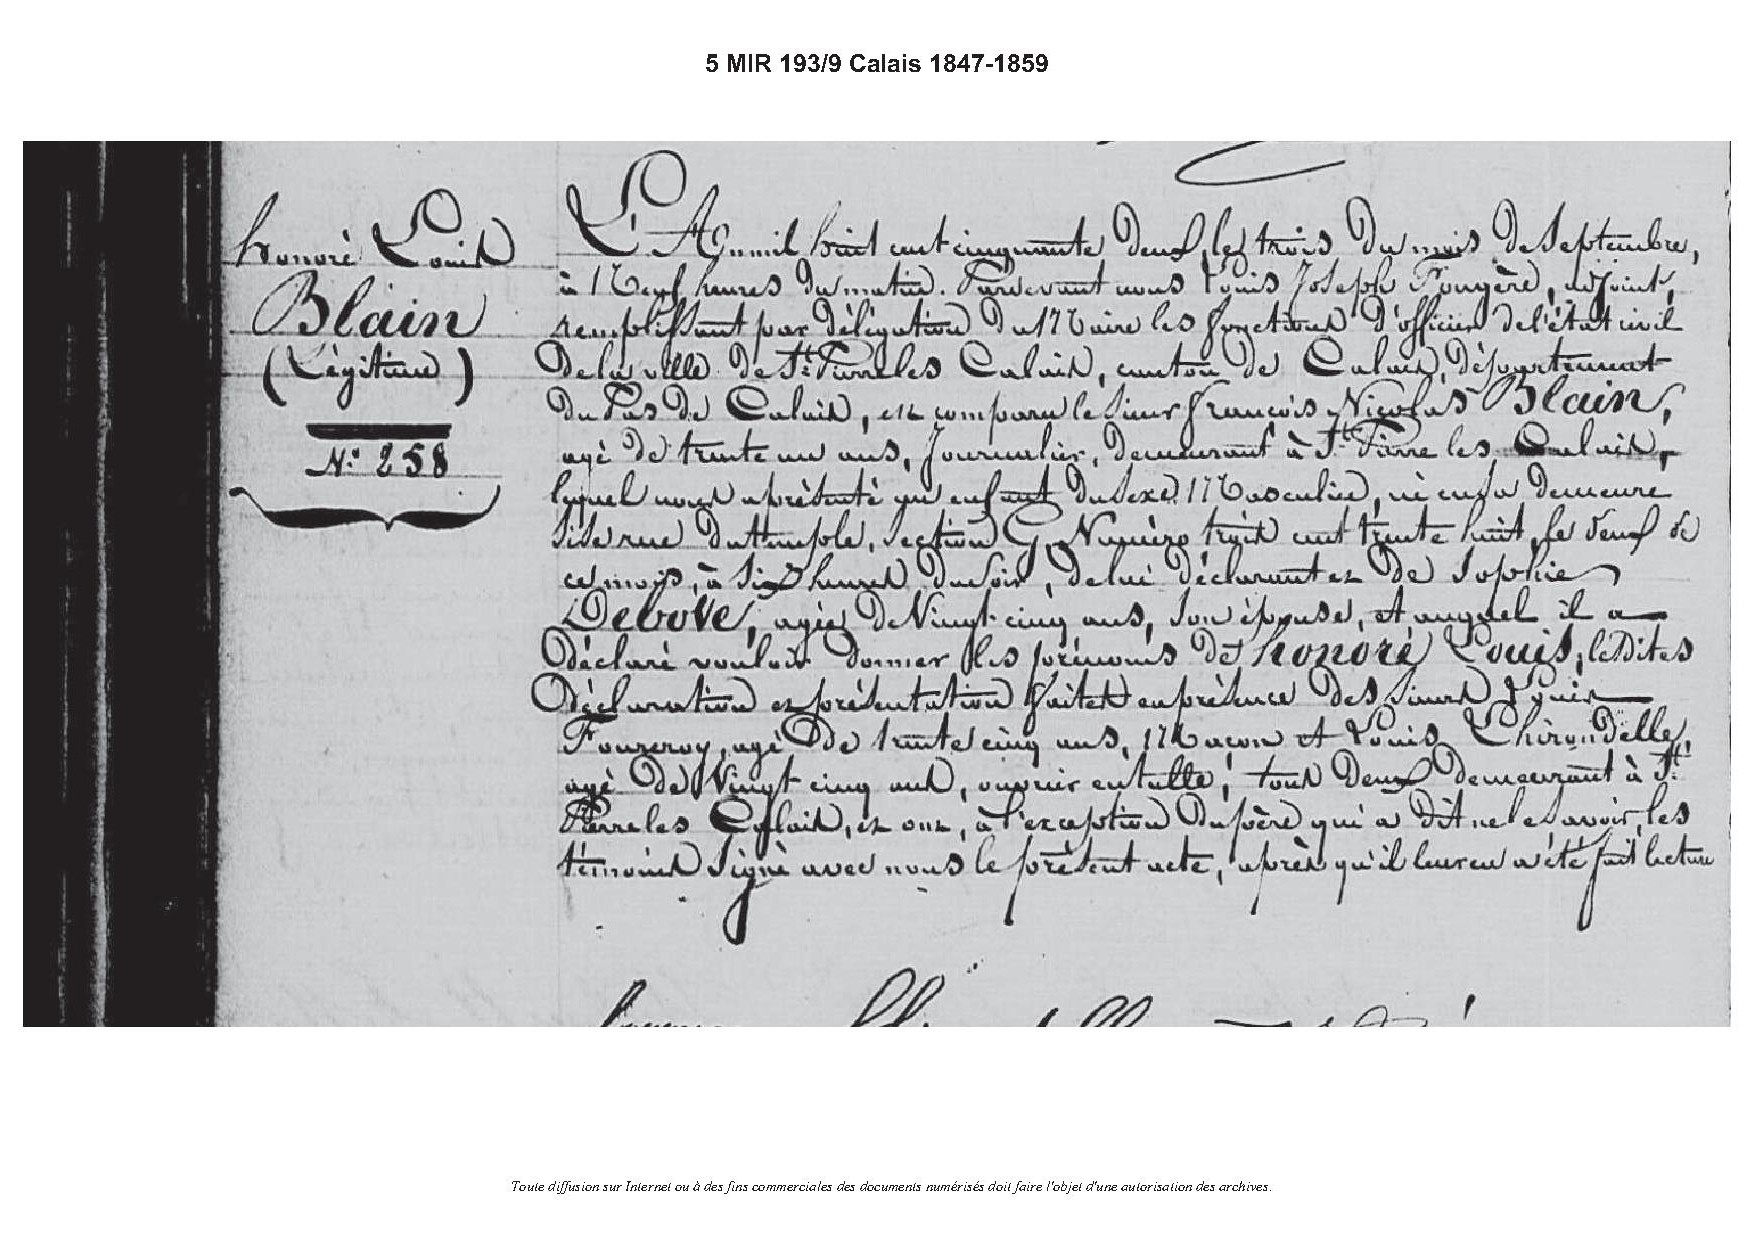 5 MIR 193/9 Calais 1847-1859
honoré Louis
Blain
(Légitime)
N.° 258
L'An mil huit cent cinquante deux, le trois du mois de Septembre,
à Neuf heures du matin. Pardevant nous Louis Joseph Fougère, adjoint,
remplissant par délégation du Maire les fonctions d'officier de l'état civil
de la ville de St. Pierre les Calais, canton de Calais, département
du Pas de Calais, est comparu le Sieur françois Nicolas Blain,
agé de trente un ans, Journalier, demeurant à St. Pierre les Calais,
lequel nous a présenté un enfant du sexe Masculin, né en sa demeure
sise rue du temple, section G, Numéro trois cent trente huit, le deux de
ce mois, à six heures du soir, de lui déclarant et de Sophie
Debove, agée de Vingt cinq ans, son épouse, et auquel il a
déclaré vouloir donner les prénoms de honoré Louis, lesdites
Déclaration et présentation faites en présence des Sieurs Louis
Fourcroy, agé de trente cinq ans, Maçon et Louis Lhirondelle,
agé de Vingt cinq ans, ouvrier en tulle, tous deux demeurant à St.
Pierre les Calais, et ont, à l'exception du père qui a dit ne le savoir, les
témoins signé avec nous le présent acte, après qu'il leur en a été fait lecture
Toute diffusion sur Internet ou à des fins commerciales des documents numérisés doit faire l'objet d'une autorisation des archives.